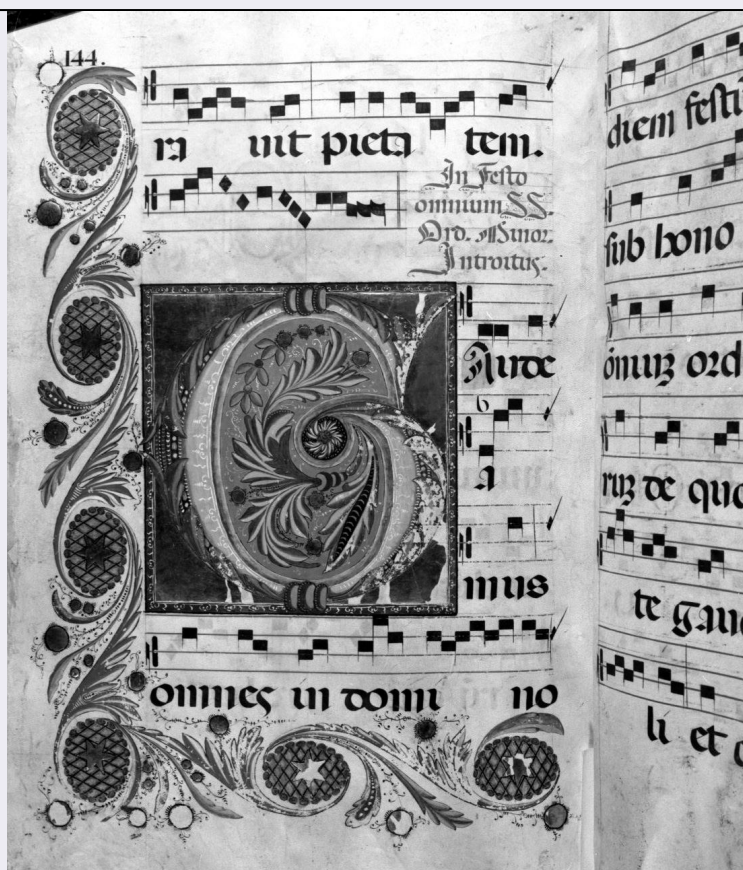 144.
ra uit pieta tem.
In Festo
omnium SS.
Ord. Minor.
Introitus.
G Aude
a
mus
omnes in domi no
diem festi
sub hono
omnium ord
rum de quo
te gau
li et